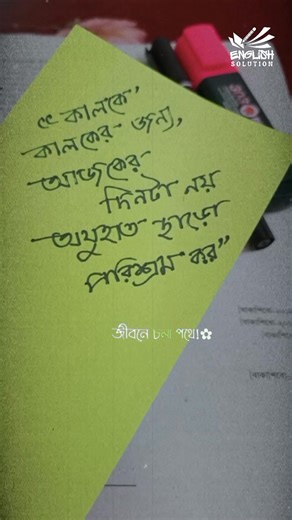 ENGLISH
SOLUTION
“কালকে’
কালকের জন্য,
আজকের
দিনটা নয়
অযুহাত ছাড়ো
পরিশ্রম কর”
জীবনে চলা পথে!✿